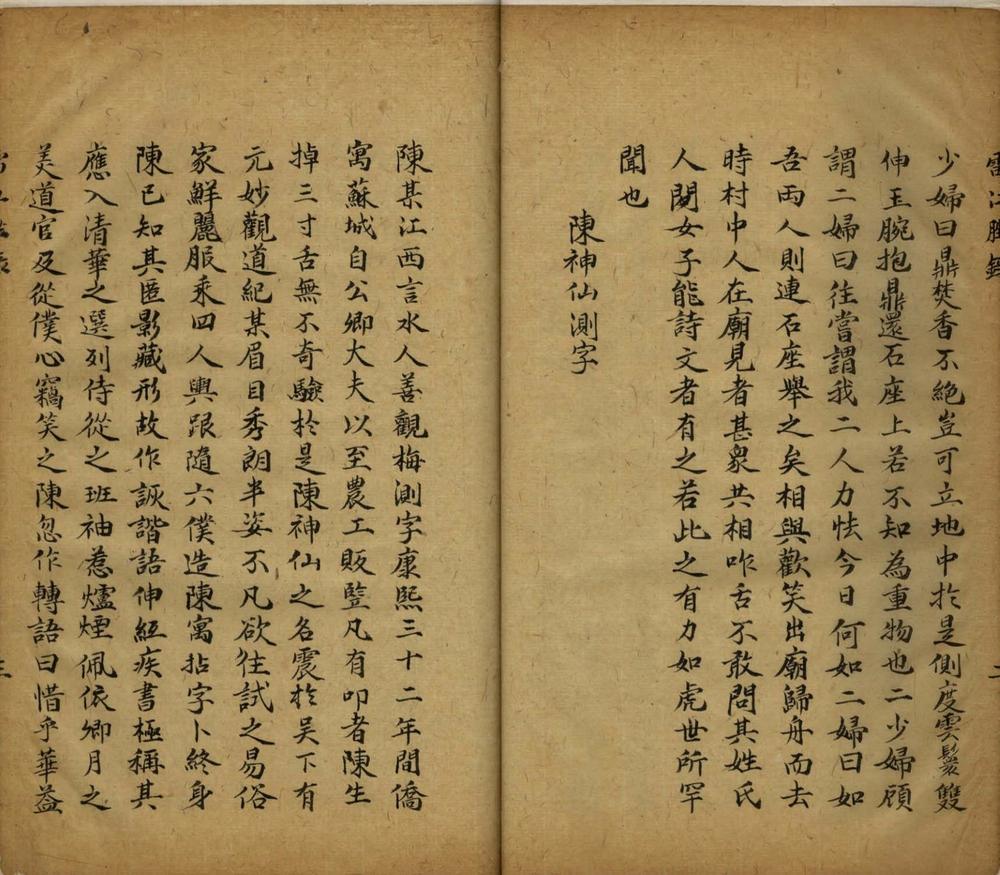 少婦曰鼎焚香不絕豈可立地中扵是側度雲鬟雙
伸玉腕抱鼎還石座上若不知為重物也二少婦頋
謂二婦曰往嘗謂我二人力怯今日何如二婦曰如
吾両人則連石座舉之矣相與歡笑出廟歸舟而去
時村中人在廟見者甚衆共相咋舌不敢問其姓氏
人閒女子能詩文者有之若此之有力如虎世所罕
聞也
陳神仙測字
陳某江西言水人善觀梅測字康熙三十二年間僑
寓蘇城自公卿大夫以至農工販豎凡有叩者陳生
掉三寸舌無不奇驗扵是陳神仙之名震扵吴下有
元妙觀道紀某眉目秀朗半姿不凡欲往試之易俗
家鮮麗服乘四人輿跟隨六僕造陳寓拈字卜終身
陳已知其匿影藏形故作詼諧語伸紙疾書極稱其
應入清華之選列侍從之班袖惹爐煙佩依卿月之
美道官及從僕心竊笑之陳忽作轉語曰惜乎華益